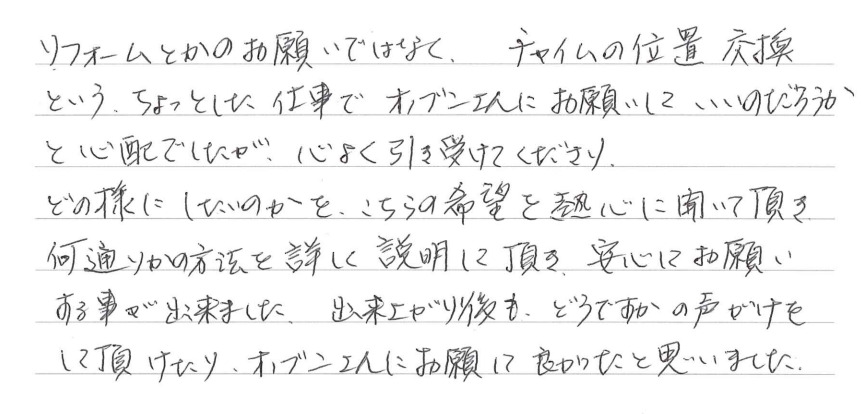 リフォームとかのお願いではなく、チャイムの位置交換
という、ちょっとした仕事でオノブンさんにお願いしていいのだろうか
と心配でしたが、心よく引き受けてくださり、
どの様にしたいのかを、こちらの希望を熱心に聞いて頂き
何通りかの方法を詳しく説明して頂き、安心してお願い
する事が出来ました。出来上がり後も、どうですかの声がけを
して頂けたり、オノブンさんにお願して良かったと思いました。